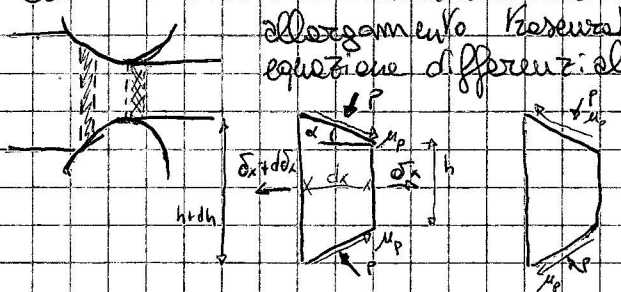 allargamento trascurab
equazione differenzial
P
P
α
μp
μp
σx+dσx
dx
σx
h
h+dh
μp
P
P
μp